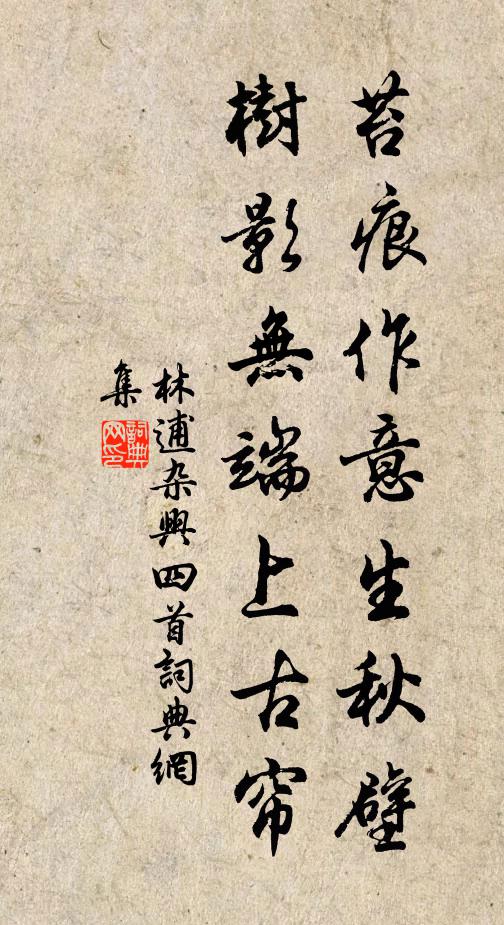 苔痕作意生秋壁
樹影無端上古帘
林逋杂興四首詞典網
集
詞典
网印